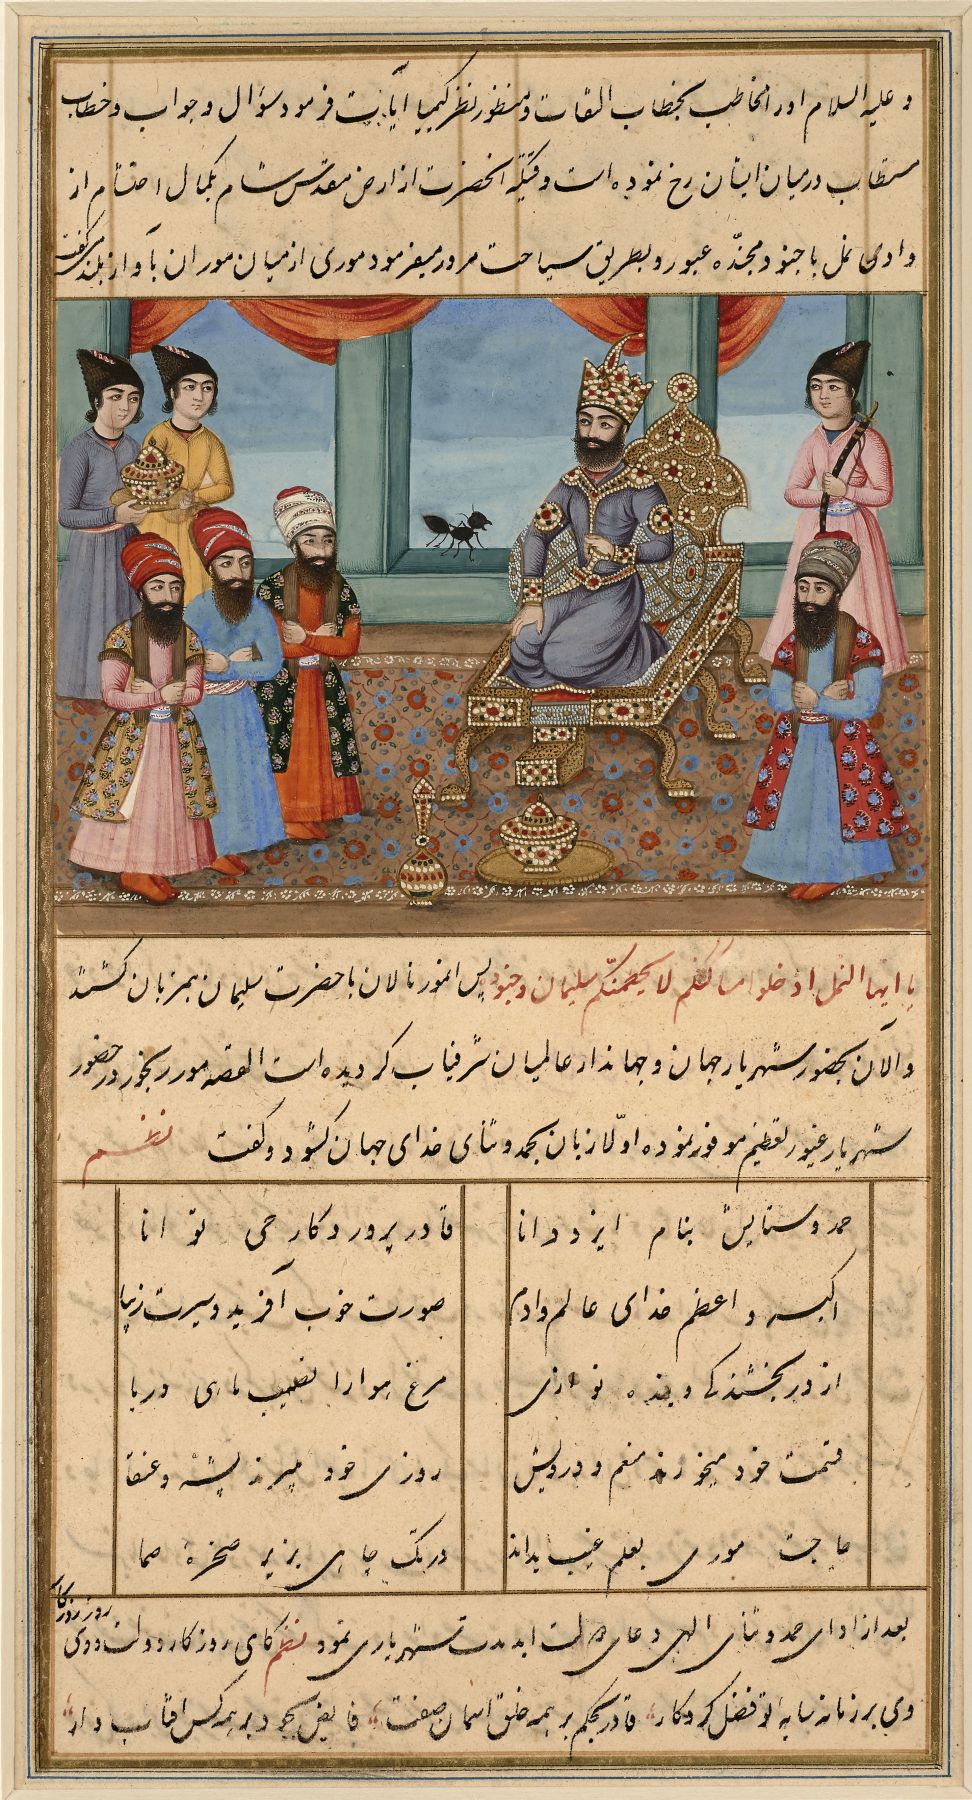 و علیه السلام اور امخاطب بخطاب التفات و منظور نظر کیمیا آیات فرمود سؤال و جواب و خطاب
مستطاب در میان ایشان رخ نموده است وقتیکه انحضرت از ارض مقدس شام بکمال احتشام از
وادی نمل با جنود مجنده عبور و بطریق سیاحت مرور میفرمود موری از میان موران بآواز بلند میگفت
یا ایها النمل ادخلوا مساکنکم لا یحطمنکم سلیمان و جنوده پس انمور نالان با حضرت سلیمان همزبان گشته
و الآن بحضور شهریار جهان و جهاندار عالمیان شرفیاب گردیده است القصه مور رنجور در حضور
شهریار غیور تعظیم موفور نموده اولا زبان بحمد و ثنای خدای جهان گشود و گفت نظم
حمد و ستایش بنام ایزد دانا قادر پروردگار حی توانا
اکبر و اعظم خدای عالم و ادم صورت خوب آفرید و سیرت زیبا
از در بخشندگی و بنده نوازی مرغ هوا را نصیب ماهی دریا
قسمت خود میخورند منعم و درویش روزی خود میبرند پشه و عنقا
حاجت موری بعلم غیب بداند در تک چاهی بزیر صخره صما
بعد از ادای حمد و ثنای الهی دعای دولت ابد مدت شهریاری نمود نظم کای روزگار دولت و وی روز روزگار
وی بر زمانه سایه تو فضل کردگار قادر بحکم بر همه خلق اسمان صفت فایض بجود بر همه کس افتاب وار